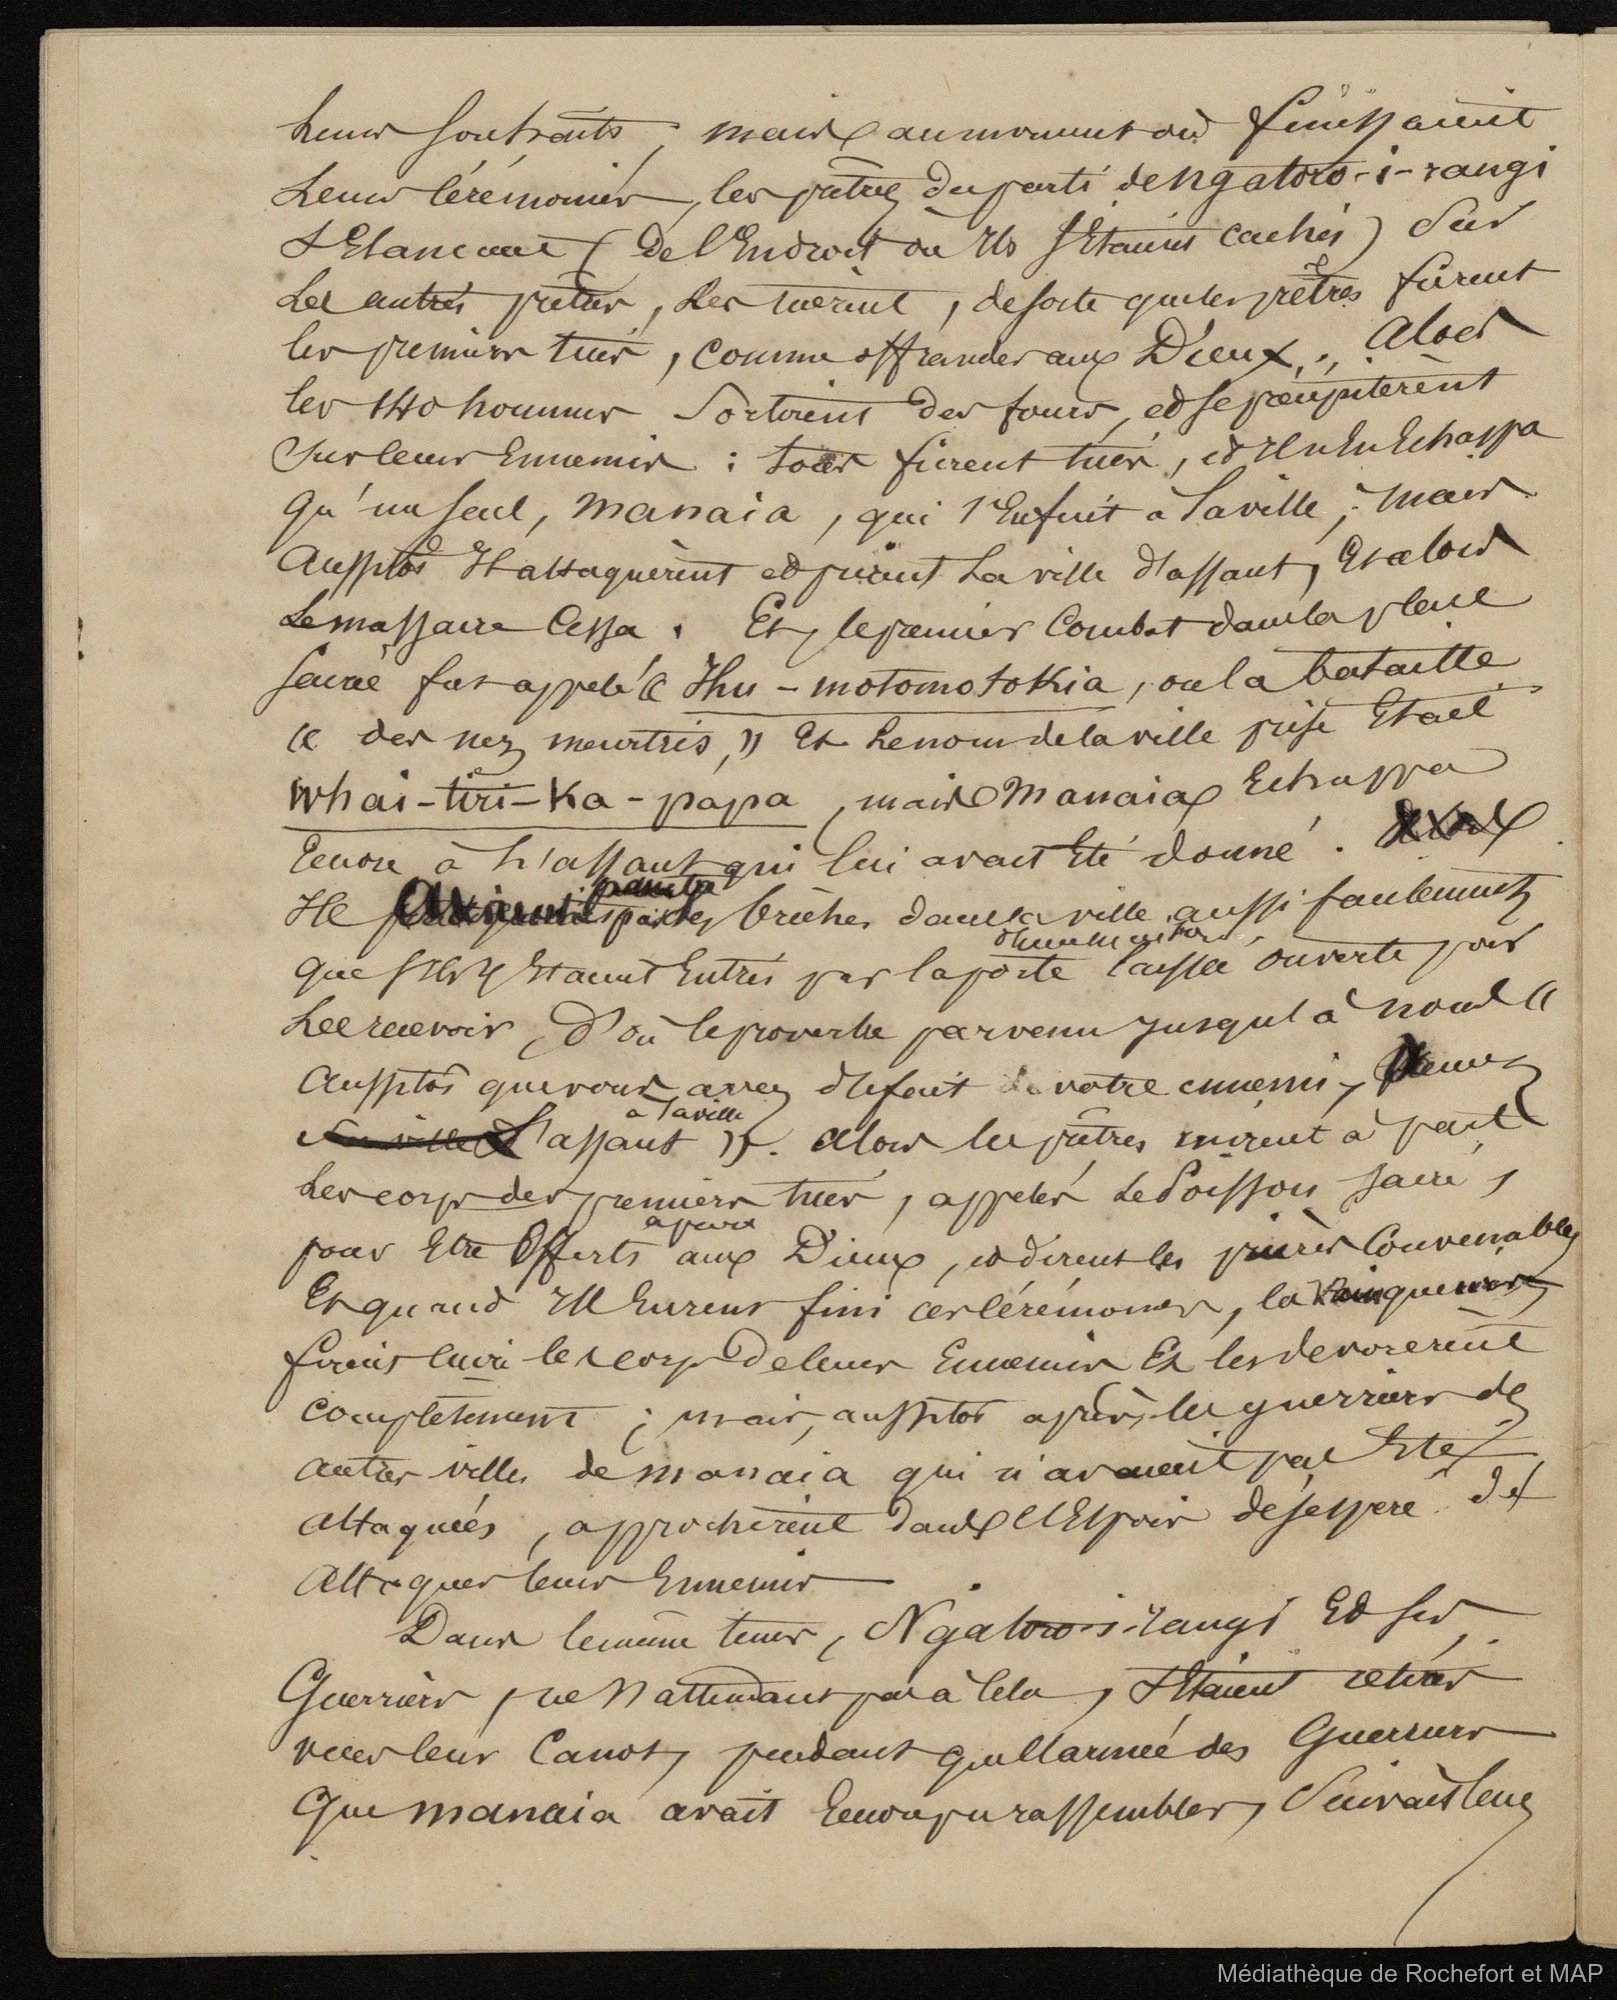 Leurs souhaits ; mais au moment où finissaient
Leurs Cérémonies, les prêtres du parti de ngatoro-i-rangi
S'Elancent (de l'Endroit où Ils S'Etaient cachés) Sur
Les autres prêtres, Les tuèrent, de sorte que les prêtres furent
les premiers tués, comme offrandes aux Dieux. Alors
les 140 hommes Sortirent des fours, et se précipitèrent
Sur leurs Ennemis : tous furent tués, et Il n'En Echappa
Qu'un seul, Manaia, qui s'Enfuit à la ville ; Mais
Aussitôt Ils attaquèrent et prirent La ville d'assaut, Et alors
Le massacre Cessa. Et, le premier Combat dans la place
Sacrée fut appelé « Ihu - motomotokia, ou la bataille
« des nez meurtris, » Et Le nom de la ville prise Etait
Whai-tiri-Ka-papa, mais Manaia Echappa
Encore à L'assaut qui lui avait Eté donné.
Ils brèches dans la ville aussi facilement
que s'Ils y Etaient Entrés par la porte laissée ouverte pour
Les recevoir, D'où le proverbe parvenu jusqu'à nous «
Aussitôt que vous avez défait votre ennemi,
à la ville
L'assaut ». Alors les prêtres mirent à part
Les corps des premiers tués, appelés Le Poisson Sacré,
à part
pour Etre Offerts aux Dieux, et dirent les prières Convenables
Et quand Ils Eurent fini ces Cérémonies, les Vainqueurs
firent cuire les corps De leurs Ennemis Et les devorerent
complètement ; mais, aussitôt après, les guerriers des
autres villes de Manaia qui n'avaient pas Eté
attaqués, approchèrent dans l'Espoir désespéré de
Attaquer leurs Ennemis
Dans le même tems, Ngatoro-i-rangi Et Ses
Guerriers, ne s'attendant pas à Cela, S'Etaient retirés
vers leur Canot, pendant que l'armée des Guerriers
Que Manaia avait Encore pu rassembler, Suivait leurs
Médiathèque de Rochefort et MAP